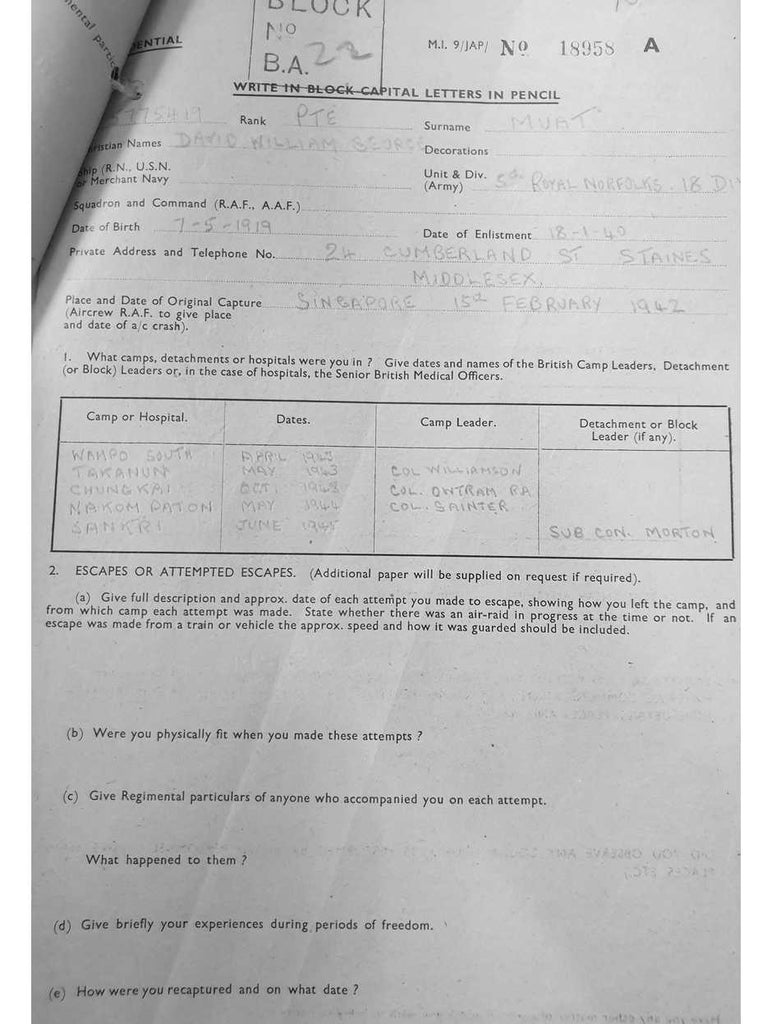 mental partic
DENTIAL
BLOCK
NO
B.A. 22
M.I. 9/JAP/ No 18958 A
WRITE IN BLOCK CAPITAL LETTERS IN PENCIL
5775419 Rank PTE Surname MUAT
ristian Names DAVID WILLIAM GEORGE Decorations
Ship (R.N., U.S.N.
or Merchant Navy
Unit & Div. 5th ROYAL NORFOLKS. 18 DIV
(Army)
Squadron and Command (R.A.F., A.A.F.)
Date of Birth 7-5-1919 Date of Enlistment 18-1-40
Private Address and Telephone No. 24 CUMBERLAND ST STAINES
MIDDLESEX.
Place and Date of Original Capture SINGAPORE 15th FEBRUARY 1942
(Aircrew R.A.F. to give place
and date of a/c crash).
1. What camps, detachments or hospitals were you in ? Give dates and names of the British Camp Leaders, Detachment
(or Block) Leaders or, in the case of hospitals, the Senior British Medical Officers.
Camp or Hospital. Dates. Camp Leader. Detachment or Block
Leader (if any).
WAMPO SOUTH APRIL 1943
TAKANUN MAY 1943 COL WILLIAMSON
CHUNGKAI OCT. 1943 COL. OWTRAM RA
NAKOM PATON MAY 1944 COL. SAINTER
SANKRI JUNE 1945 SUB. CON. MORTON
2. ESCAPES OR ATTEMPTED ESCAPES. (Additional paper will be supplied on request if required).
(a) Give full description and approx. date of each attempt you made to escape, showing how you left the camp, and
from which camp each attempt was made. State whether there was an air-raid in progress at the time or not. If an
escape was made from a train or vehicle the approx. speed and how it was guarded should be included.
(b) Were you physically fit when you made these attempts ?
(c) Give Regimental particulars of anyone who accompanied you on each attempt.
What happened to them ?
(d) Give briefly your experiences during periods of freedom.
(e) How were you recaptured and on what date ?